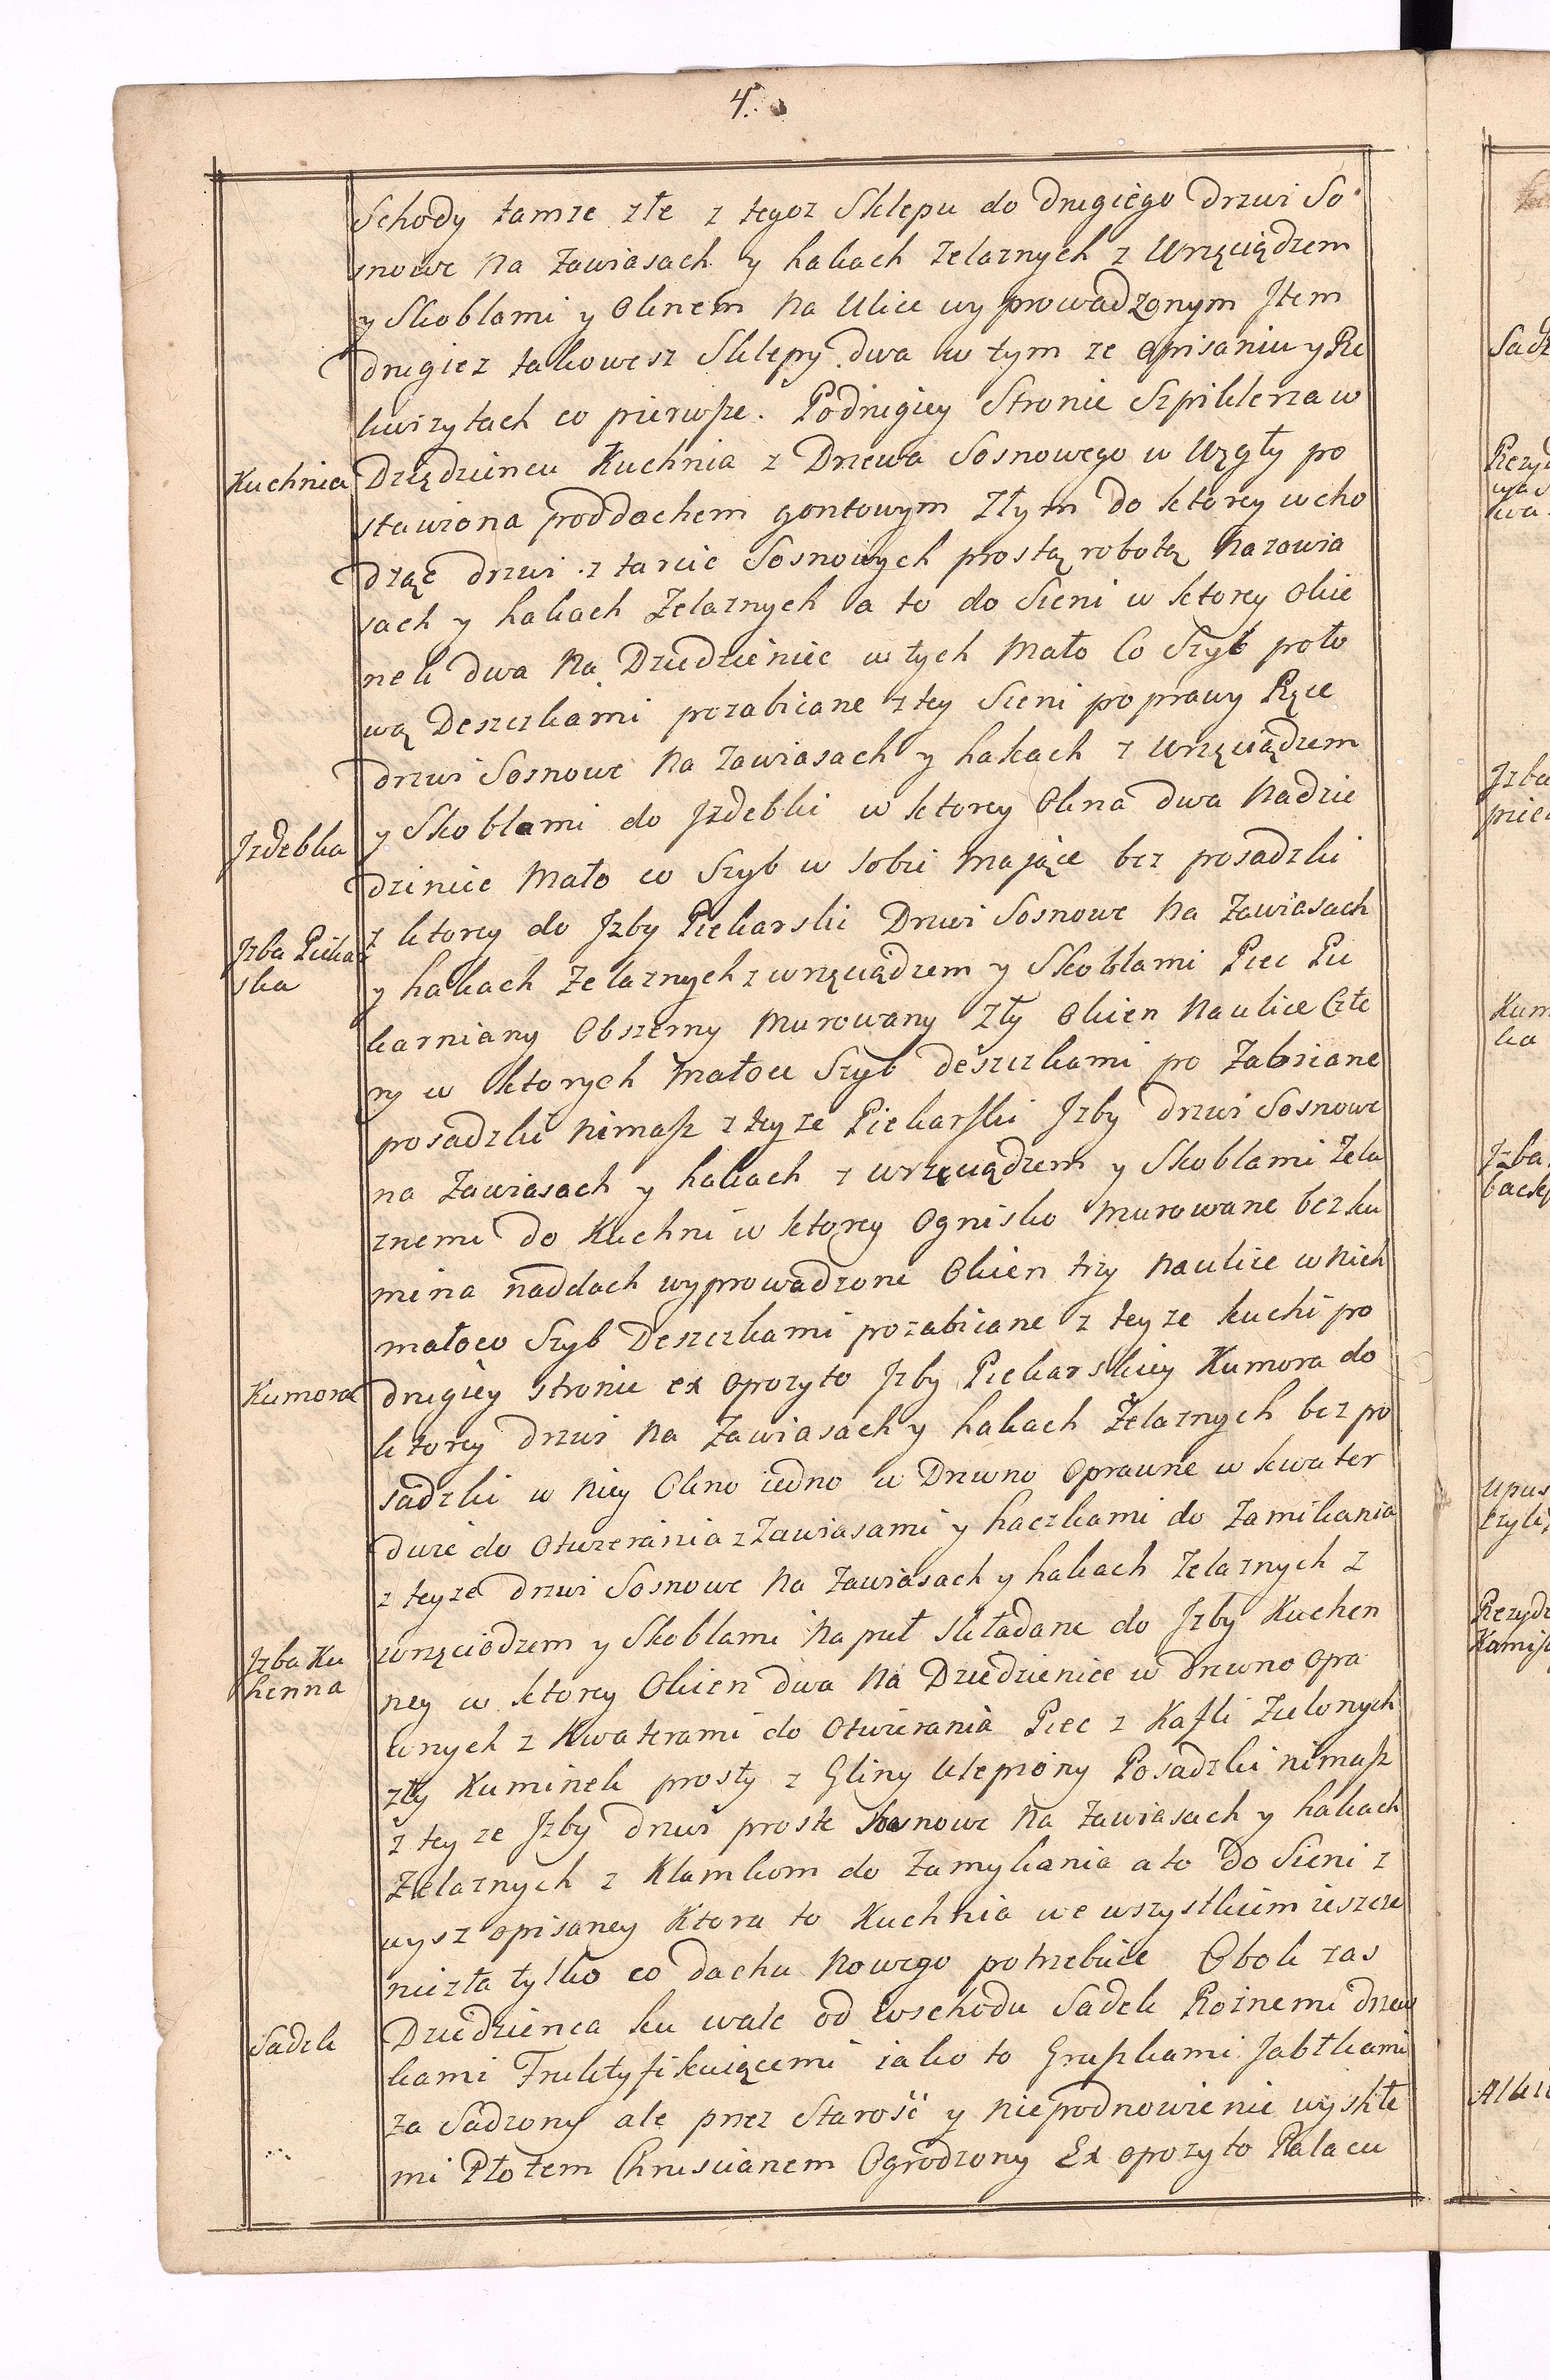 4.
Schody tamze złe z tegoz Sklepu do drugiego drzwi So
snowe na zawiasach y hakach zelaznych z Wrzęciądzem
y Skoblami y Oknem na Ulice wyprowadzonym Jtem
drugiez takowesz Sklepy dwa w tym ze opisaniu y Re
kwizytach co pierwsze. Podrugiey Stronie Szpiklerza w
Kuchnia
Dzędzincu Kuchnia z Drzewa Sosnowego w Węgły po
stawiona poddachem gontowym Złym do ktorey wcho
dząc drzwi z tarcic Sosnowych prostą robotą nazawia
sach y hakach Zelaznych a to do Sieni w ktorey Okie
nek dwa na Dziedziniec w tych mało Co Szyb poło
wą Deszczkami pozabiiane z tey Sieni po prawy Ręce
drzwi Sosnowe na zawiasach y hakach z wrzęciądzem
Jzdebka
y Skoblami do Jzdebki w ktorey Okna dwa nadzie
dziniec mało co Szyb w sobie mające bez posadzki
Jzba Piekar
ska
z ktorey do Jzby Piekarski Drzwi Sosnowe na Zawiasach
y hakach Zelaznych z wrzęciądzem y Skoblami Piec Pie
karniany Obszerny murowany Zły Okien naulice Czte
ry w ktorych małoco Szyb deszczkami po zabiiane
posadzki nimasz z teyze Piekarski Jzby drzwi Sosnowe
na Zawiasach y hakach z wrzęciądzem y Skoblami Zela
znemi do Kuchni w ktorey Ognisko murowane bez ku
mina naddach wyprowadzone Okien trzy naulice w nich
małoco Szyb Deszczkami pozabiiane z teyze kuchi po
Kumora
drugiey stronie ex opozyto Jzby Piekarskiey Kumora do
ktorey drzwi na Zawiasach y hakach Żelaznych bez po
sadzki w niey Okno iedno w Drewno Oprawne w kwater
dwie do Otwierania z Zawiasami y haczkami do Zamikania
z teyze drzwi Sosnowe na zawiasach y hakach Zelaznych z
Jzba Ku
henna
wrzęciodzem y Skoblami na puł składane do Jzby Kuchen
ney w ktorey Okien dwa na Dziedzieniec w drewno Opra
wnych z Kwaterami do Otwierania Piec z Kafli Zielonych
zły Kuminek prosty z Gliny Ulepiony Posadzki nimasz
z tey ze Jzby drzwi proste Sosnowe na Zawiasach y hakach
Zelaznych z Klamkom do Zamykania a to do Sieni z
wysz opisaney Ktora to Kuchnia we wszystkiem ieszcze
niezła tylko co dachu nowego potrzebuie Obok zas
Sadek
Dziedzienca ku wale od wschodu Sadek Roznemi drzew
kami Fruktyfikuiącemi iako to Gruszkami Jabłkami
za Sadzony ale przez Starość y niepodnowienie wyskłe
mi Płotem Chruscianem Ogrodzony Ex opozyto Pałacu